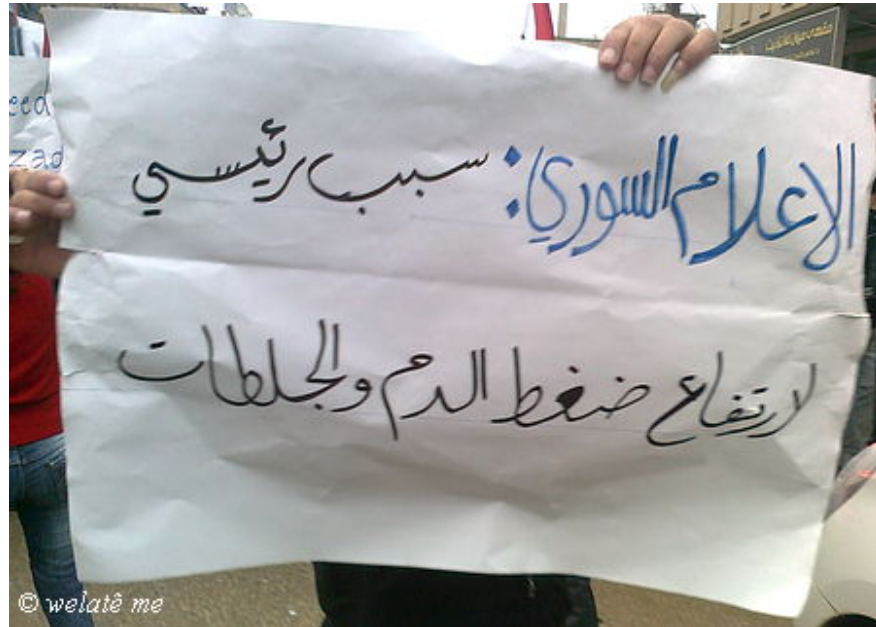 الاعلام السوري: سبب رئيسي
لارتفاع ضغط الدم والجلطات
eed
zad
© welatê me